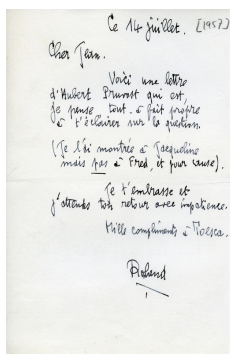 Ce 14 juillet. [1957]
Cher Jean.
Voici une lettre
d'Hubert Pruvost qui est,
je pense tout-à fait propre
à t'éclairer sur la question.
(Je l'ai montrée à Jacqueline
mais pas à Fred, et pour cause).
Je t'embrasse et
j'attends ton retour avec impatience.
Mille compliments à
Roland